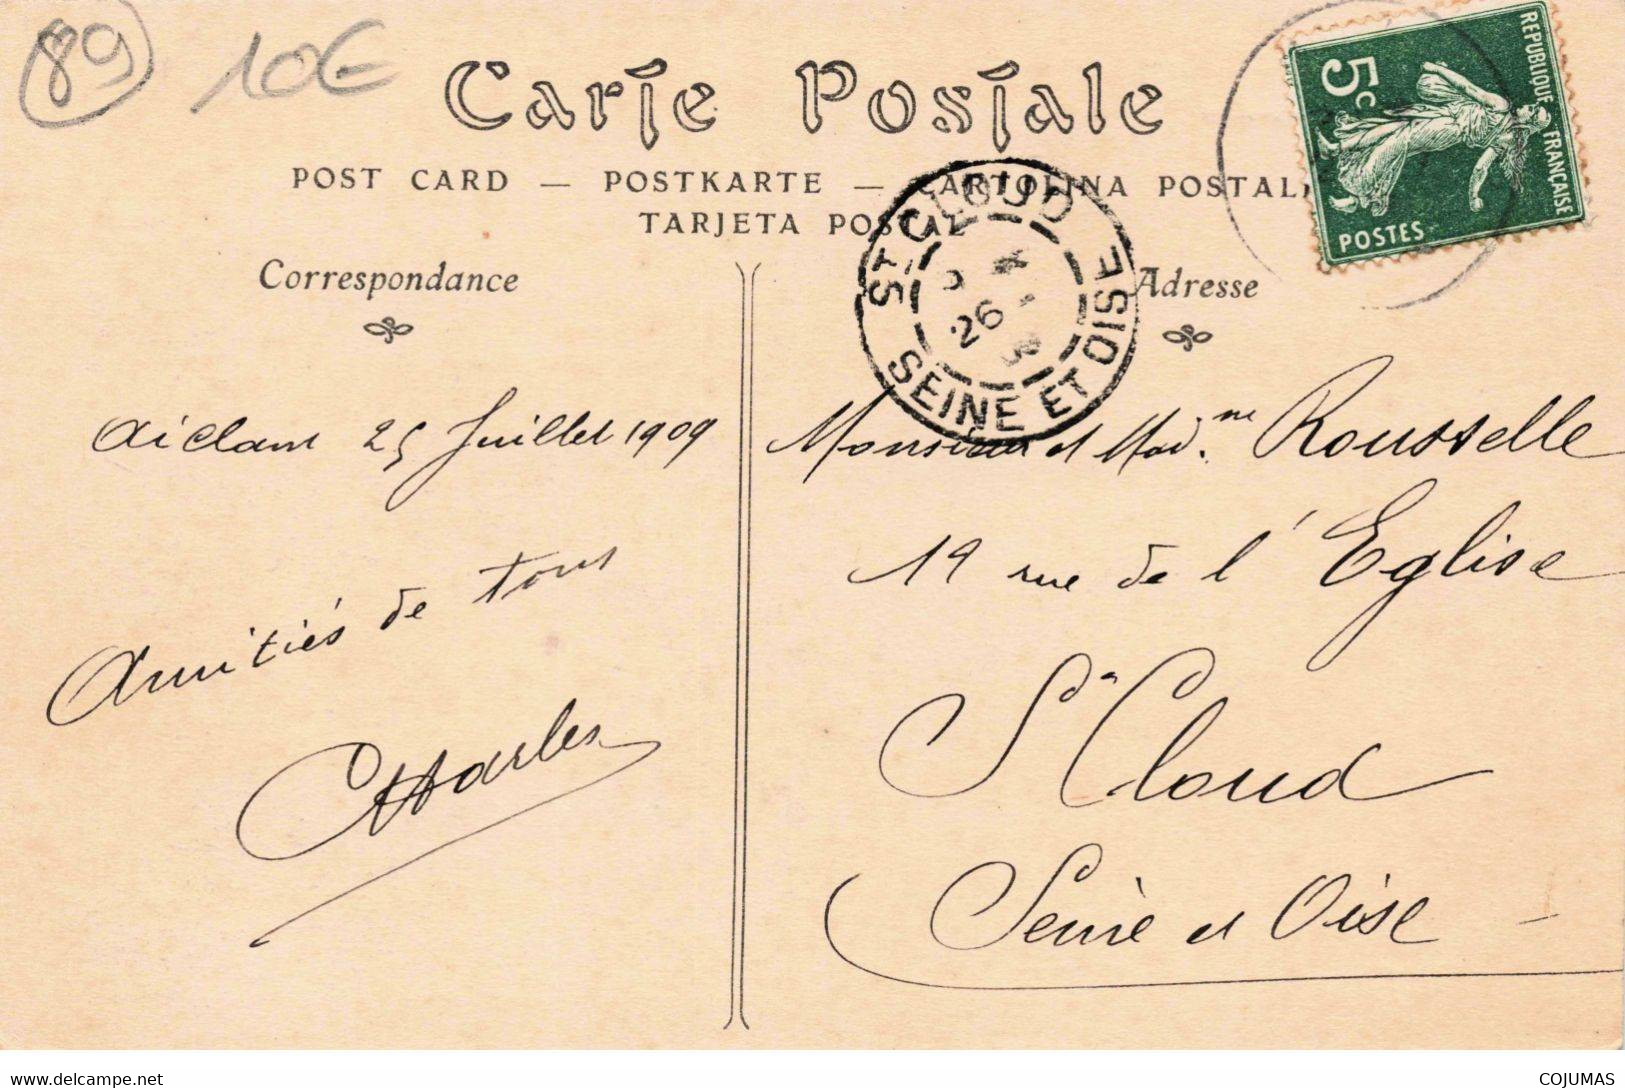 89
10€
Carte Postale
POST CARD — POSTKARTE — CARTOLINA POSTAL
TARJETA POSTAL
REPUBLIQUE FRANÇAISE
5c
POSTES
ST CLOUD
26
SEINE ET OISE
Correspondance
Adresse
25 Juillet 1909
Amitiés de tous
Charles
Monsieur et Mad.me Rousselle
19 rue de l'Eglise
St Cloud
Seine et Oise
www.delcampe.net
COJUMAS